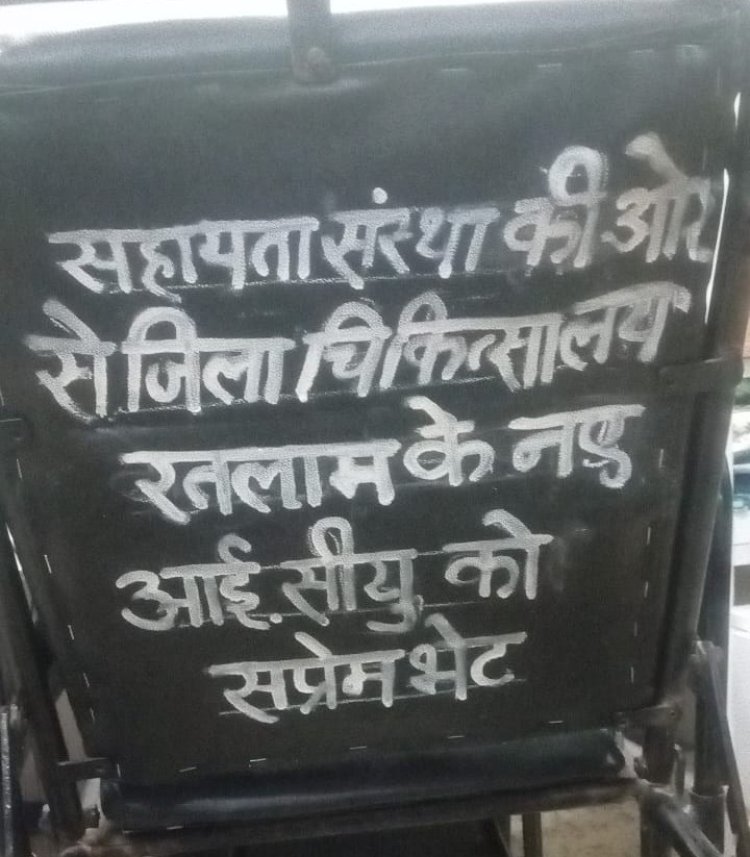 सहायता संस्था की ओर
से जिला चिकित्सालय
रतलाम के नए
आई.सीयु को
सप्रेम भेट